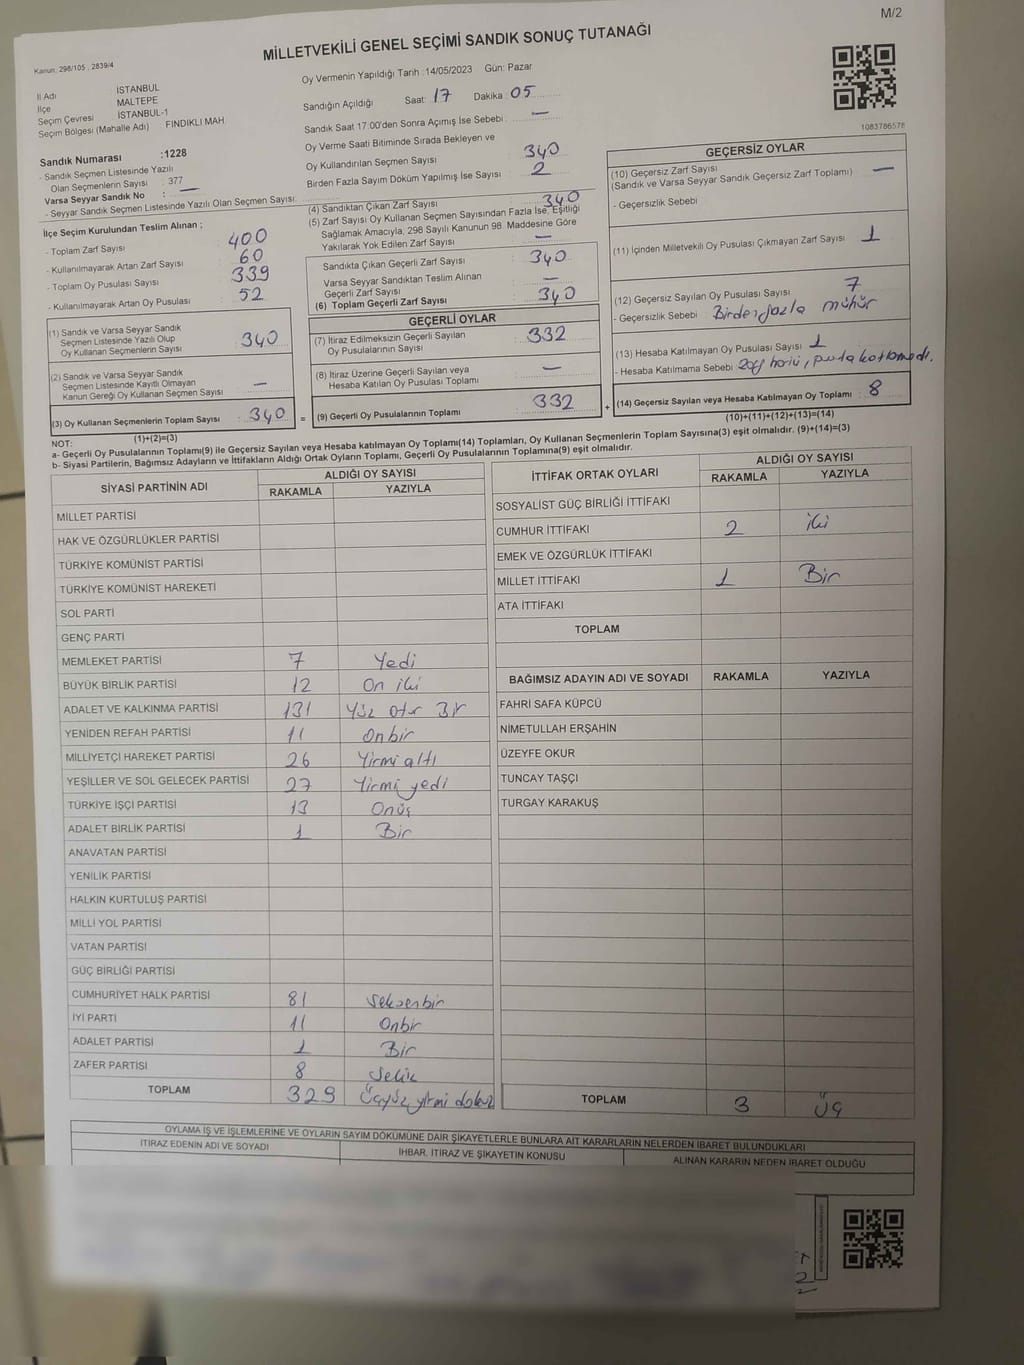 M/2
MİLLETVEKİLİ GENEL SEÇİMİ SANDIK SONUÇ TUTANAĞI
Kanun: 298/105 , 2839/4
İl Adı İSTANBUL
İlçe MALTEPE
Seçim Çevresi İSTANBUL-1
Seçim Bölgesi (Mahalle Adı) FINDIKLI MAH
Sandık Numarası :1228
- Sandık Seçmen Listesinde Yazılı
Olan Seçmenlerin Sayısı : 377
Varsa Seyyar Sandık No : —
- Seyyar Sandık Seçmen Listesinde Yazılı Olan Seçmen Sayısı:
Oy Vermenin Yapıldığı Tarih :14/05/2023 Gün: Pazar
Sandığın Açıldığı Saat: 17 Dakika: 05
Sandık Saat 17:00'den Sonra Açımış İse Sebebi : —
Oy Verme Saati Bitiminde Sırada Bekleyen ve
Oy Kullandırılan Seçmen Sayısı 340
Birden Fazla Sayım Döküm Yapılmış İse Sayısı : 2
1083786578
İlçe Seçim Kurulundan Teslim Alınan ;
- Toplam Zarf Sayısı : 400
- Kullanılmayarak Artan Zarf Sayısı : 60
- Toplam Oy Pusulası Sayısı : 339
- Kullanılmayarak Artan Oy Pusulası : 52
(1) Sandık ve Varsa Seyyar Sandık
Seçmen Listesinde Yazılı Olup
Oy Kullanan Seçmenlerin Sayısı : 340
(2) Sandık ve Varsa Seyyar Sandık
Seçmen Listesinde Kayıtlı Olmayan
Kanun Gereği Oy Kullanan Seçmen Sayısı : —
(3) Oy Kullanan Seçmenlerin Toplam Sayısı : 340 =
(1)+(2)=(3)
(4) Sandıktan Çıkan Zarf Sayısı : 340
(5) Zarf Sayısı Oy Kullanan Seçmen Sayısından Fazla İse, Eşitliği
Sağlamak Amacıyla, 298 Sayılı Kanunun 98. Maddesine Göre
Yakılarak Yok Edilen Zarf Sayısı : —
Sandıkta Çıkan Geçerli Zarf Sayısı : 340
Varsa Seyyar Sandıktan Teslim Alınan
Geçerli Zarf Sayısı : —
(6) Toplam Geçerli Zarf Sayısı : 340
GEÇERLİ OYLAR
(7) İtiraz Edilmeksizin Geçerli Sayılan
Oy Pusulalarının Sayısı : 332
(8) İtiraz Üzerine Geçerli Sayılan veya
Hesaba Katılan Oy Pusulası Toplamı : —
(9) Geçerli Oy Pusulalarının Toplamı : 332 +
GEÇERSİZ OYLAR
(10) Geçersiz Zarf Sayısı : —
(Sandık ve Varsa Seyyar Sandık Geçersiz Zarf Toplamı)
- Geçersizlik Sebebi
(11) İçinden Milletvekili Oy Pusulası Çıkmayan Zarf Sayısı : 1
(12) Geçersiz Sayılan Oy Pusulası Sayısı : 7
- Geçersizlik Sebebi : Birden fazla mühür
(13) Hesaba Katılmayan Oy Pusulası Sayısı : 1
- Hesaba Katılmama Sebebi :
(14) Geçersiz Sayılan veya Hesaba Katılmayan Oy Toplamı : 8
(10)+(11)+(12)+(13)=(14)
NOT:
a- Geçerli Oy Pusulalarının Toplamı(9) ile Geçersiz Sayılan veya Hesaba katılmayan Oy Toplamı(14) Toplamları, Oy Kullanan Seçmenlerin Toplam Sayısına(3) eşit olmalıdır. (9)+(14)=(3)
b- Siyasi Partilerin, Bağımsız Adayların ve İttifakların Aldığı Ortak Oyların Toplamı, Geçerli Oy Pusulalarının Toplamına(9) eşit olmalıdır.
SİYASİ PARTİNİN ADI ALDIĞI OY SAYISI
RAKAMLA YAZIYLA
MİLLET PARTİSİ
HAK VE ÖZGÜRLÜKLER PARTİSİ
TÜRKİYE KOMÜNİST PARTİSİ
TÜRKİYE KOMÜNİST HAREKETİ
SOL PARTİ
GENÇ PARTİ
MEMLEKET PARTİSİ 7 Yedi
BÜYÜK BİRLİK PARTİSİ 12 On iki
ADALET VE KALKINMA PARTİSİ 131 Yüz otuz Bir
YENİDEN REFAH PARTİSİ 11 Onbir
MİLLİYETÇİ HAREKET PARTİSİ 26 Yirmi altı
YEŞİLLER VE SOL GELECEK PARTİSİ 27 Yirmi yedi
TÜRKİYE İŞÇİ PARTİSİ 13 Onüç
ADALET BİRLİK PARTİSİ 1 Bir
ANAVATAN PARTİSİ
YENİLİK PARTİSİ
HALKIN KURTULUŞ PARTİSİ
MİLLİ YOL PARTİSİ
VATAN PARTİSİ
GÜÇ BİRLİĞİ PARTİSİ
CUMHURİYET HALK PARTİSİ 81 Seksenbir
İYİ PARTİ 11 Onbir
ADALET PARTİSİ 1 Bir
ZAFER PARTİSİ 8 Sekiz
TOPLAM 329 Üçyüz yirmi dokuz
İTTİFAK ORTAK OYLARI ALDIĞI OY SAYISI
RAKAMLA YAZIYLA
SOSYALİST GÜÇ BİRLİĞİ İTTİFAKI
CUMHUR İTTİFAKI 2 iki
EMEK VE ÖZGÜRLÜK İTTİFAKI
MİLLET İTTİFAKI 1 Bir
ATA İTTİFAKI
TOPLAM
BAĞIMSIZ ADAYIN ADI VE SOYADI RAKAMLA YAZIYLA
FAHRİ SAFA KÜPCÜ
NİMETULLAH ERŞAHİN
ÜZEYFE OKUR
TUNCAY TAŞÇI
TURGAY KARAKUŞ
TOPLAM 3 Üç
OYLAMA İŞ VE İŞLEMLERİNE VE OYLARIN SAYIM DÖKÜMÜNE DAİR ŞİKAYETLERLE BUNLARA AİT KARARLARIN NELERDEN İBARET BULUNDUKLARI
İTİRAZ EDENİN ADI VE SOYADI İHBAR, İTİRAZ VE ŞİKAYETİN KONUSU ALINAN KARARIN NEDEN İBARET OLDUĞU